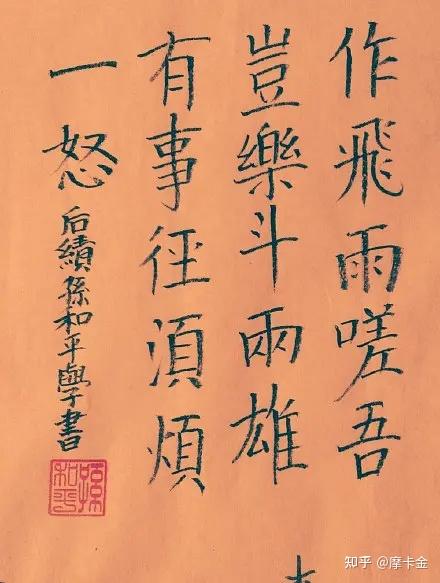 作飛雨嗟吾
豈樂斗兩雄
有事徑須煩
一怒
后績孫和平學書
孫和平
知乎 @摩卡金